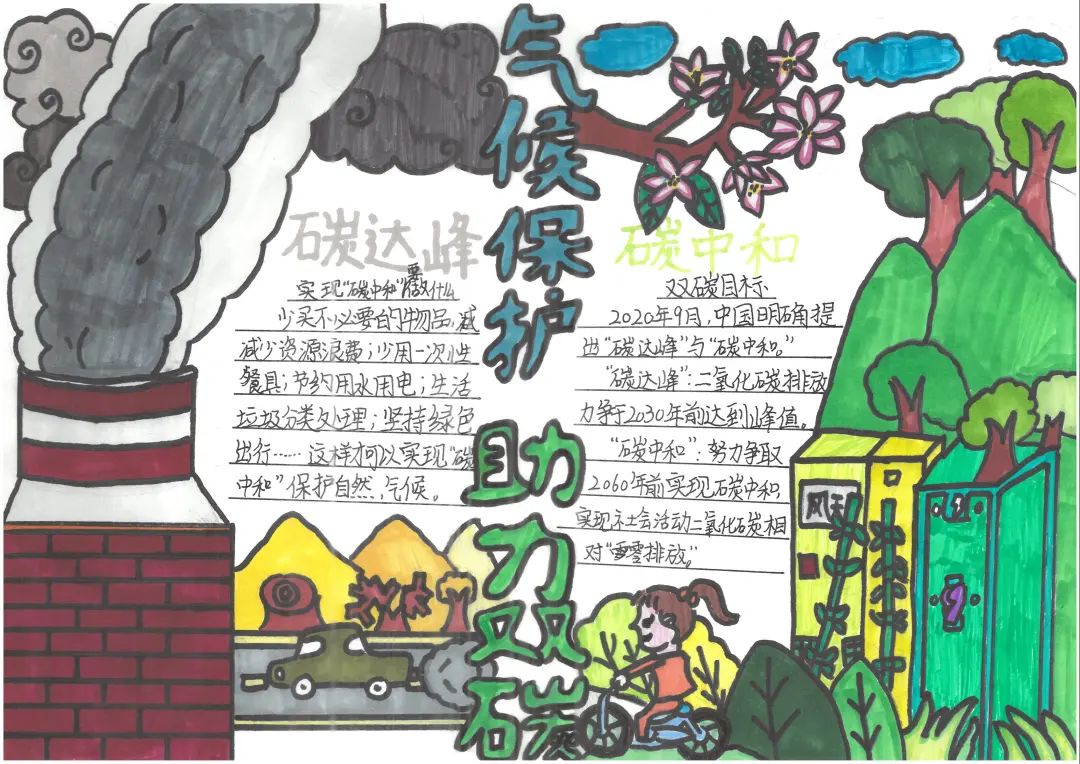 气候保护
助力双碳
碳达峰
实现“碳中和”要做什么
少买不必要的物品,减
减少资源浪费;少用一次性
餐具;节约用水用电;生活
垃圾分类处理;坚持绿色
出行……这样才可以实现“碳
中和”保护自然,气候。
碳中和
双碳目标
2020年9月,中国明确提
出“碳达峰”与“碳中和。”
“碳达峰”:二氧化碳排放
力争于2030年前达到峰值。
“碳中和”:努力争取
2060年前实现碳中和
实现社会活动二氧化碳相
对“零排放”。